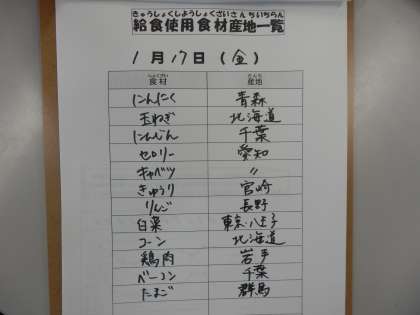 きゅうしょくしようしょくざいさんちいちらん
給食使用食材産地一覧
1月17日(金)
しょくざい さんち
食材 産地
にんにく 青森
玉ねぎ 北海道
にんじん 千葉
セロリー 愛知
キャベツ 〃
きゅうり 宮崎
りんご 長野
白菜 東京・八王子
コーン 北海道
鶏肉 岩手
ベーコン 千葉
たまご 群馬